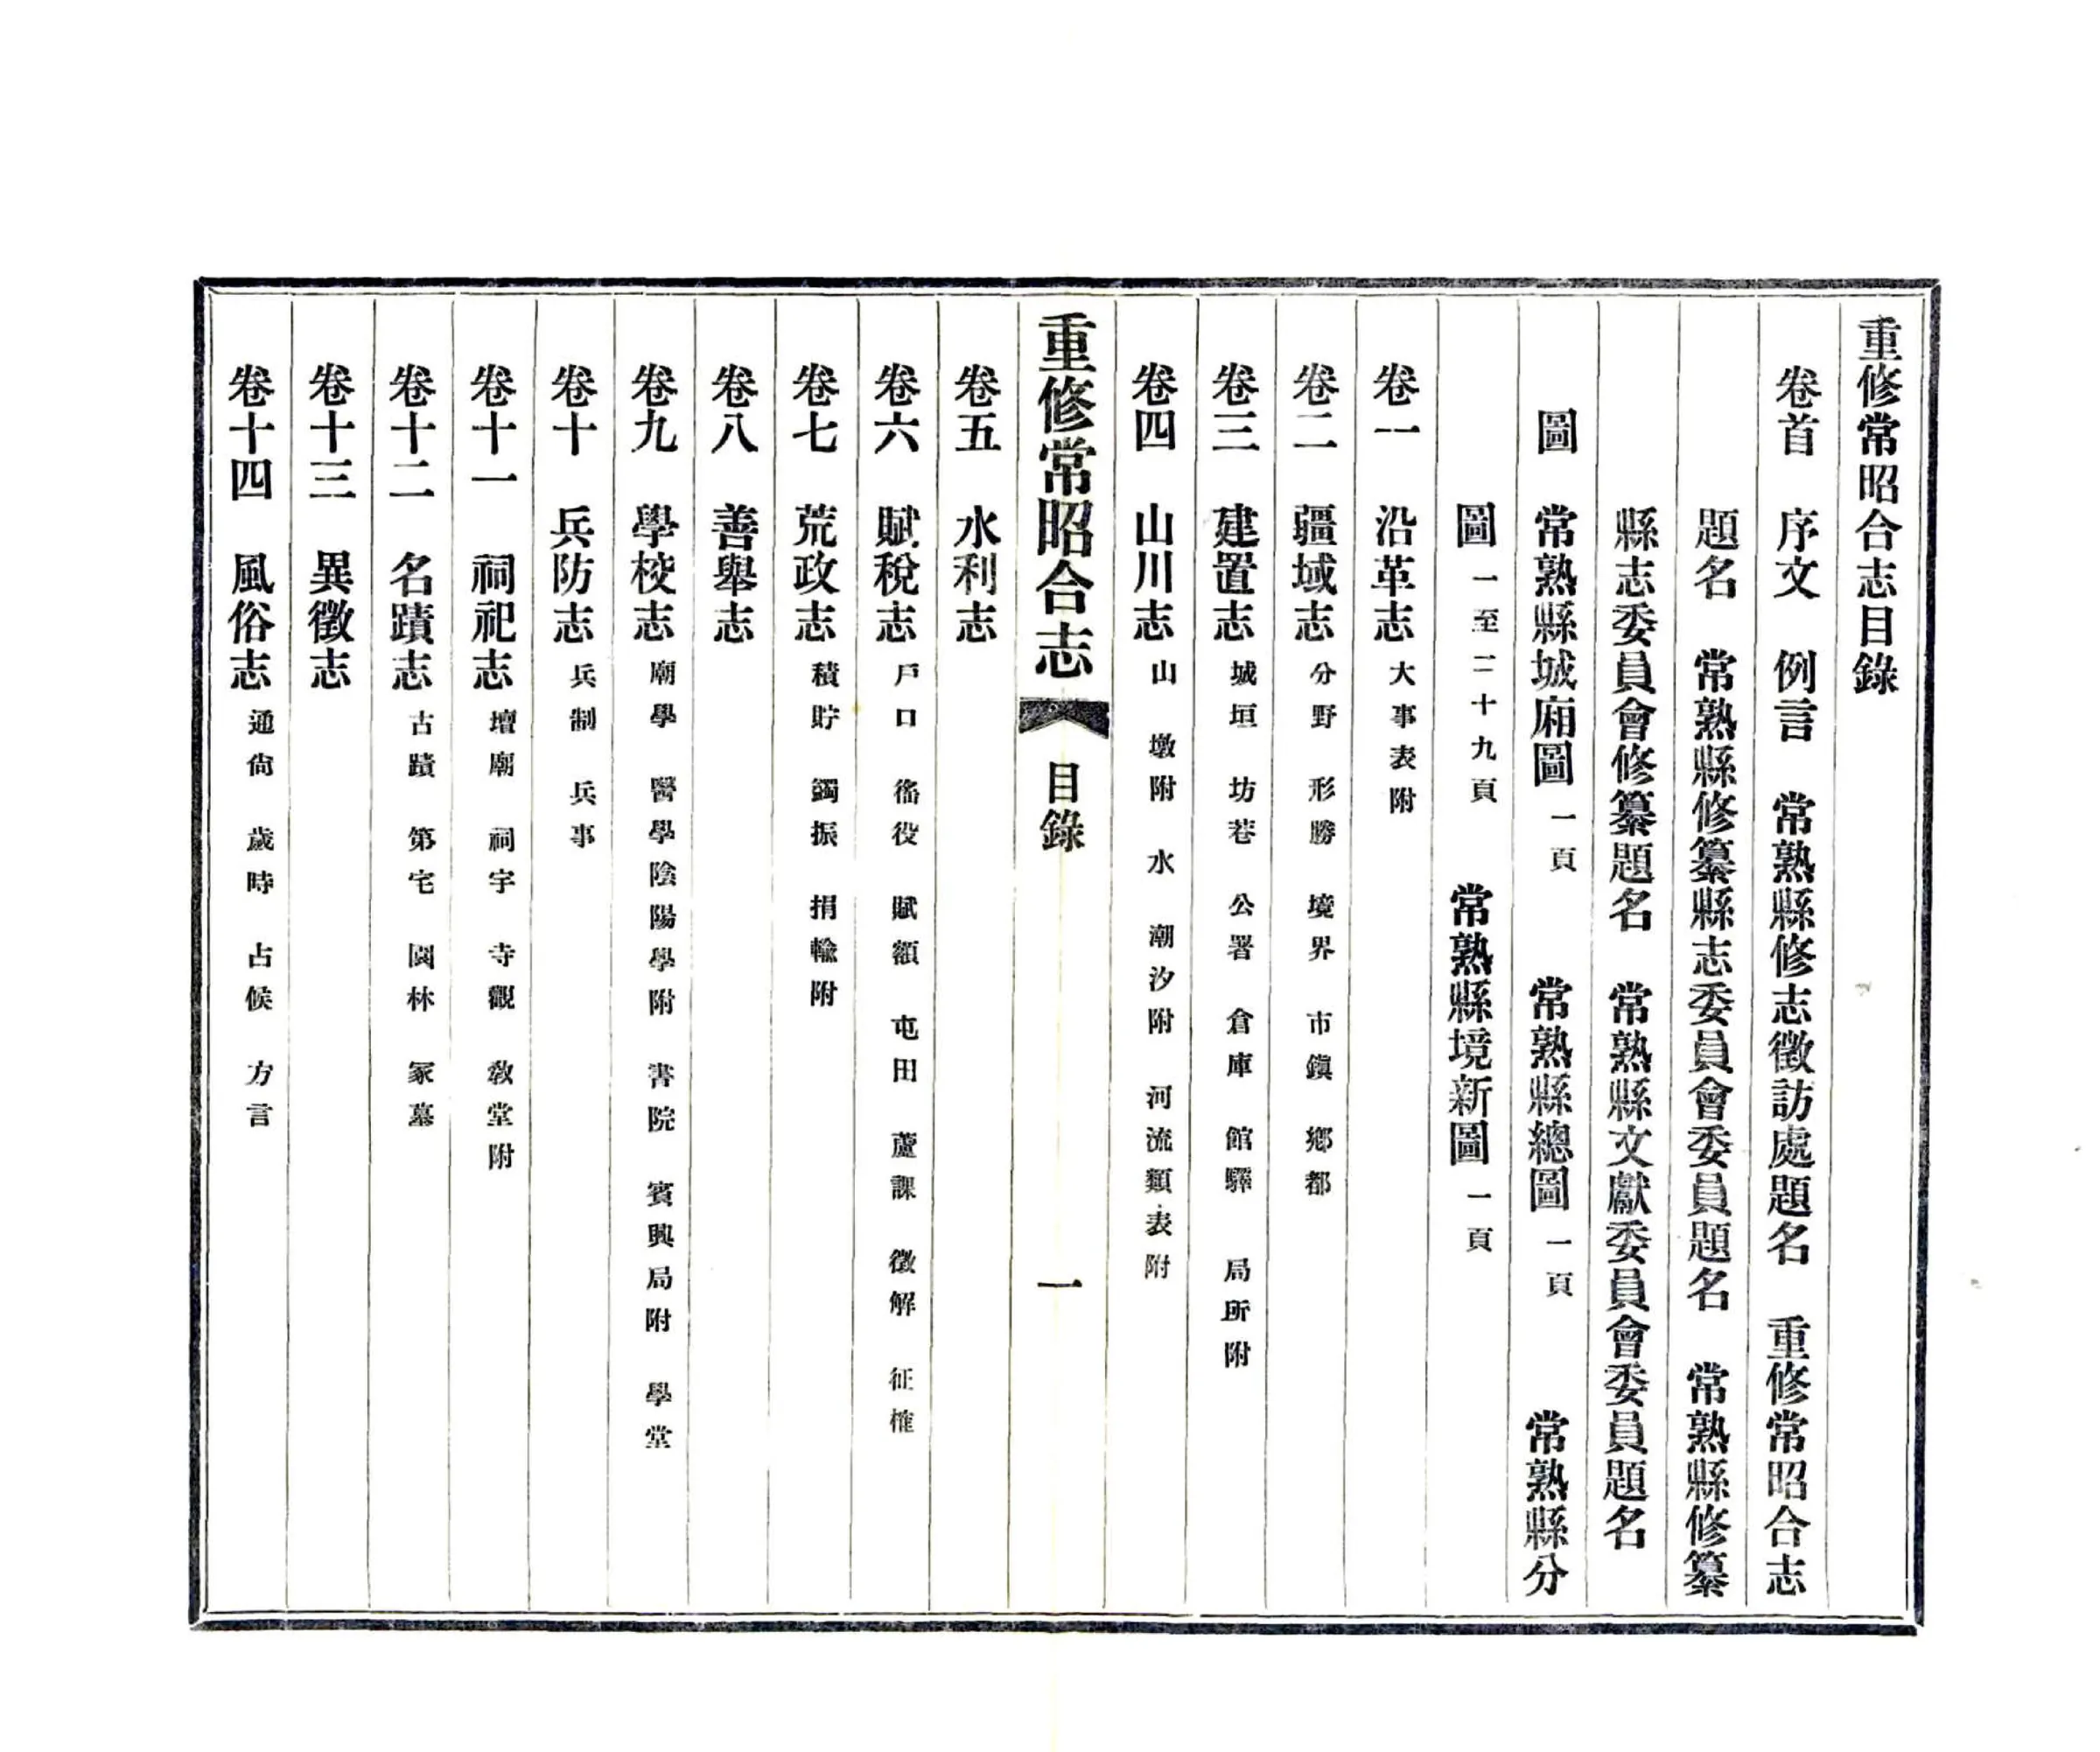 重修常昭合志目錄
卷首　序文　例言　常熟縣修志徵訪處題名　重修常昭合志
題名　常熟縣修纂縣志委員會委員題名　常熟縣修纂
縣志委員會修纂題名　常熟縣文獻委員會委員題名
圖　常熟縣城廂圖一頁　常熟縣總圖一頁　常熟縣分
圖一至二十九頁　常熟縣境新圖一頁
卷一　沿革志大事表附
卷二　疆域志分野　形勝　境界　市鎭　鄉都
卷三　建置志城垣　坊巷　公署　倉庫　館驛　局所附
卷四　山川志山　墩附　水　潮汐附　河流類表附
重修常昭合志　目錄　一
卷五　水利志
卷六　賦稅志戶口　徭役　賦額　屯田　蘆課　徵解　征榷
卷七　荒政志積貯　蠲振　捐輸附
卷八　善舉志
卷九　學校志廟學　醫學陰陽學附　書院　賓興局附　學堂
卷十　兵防志兵制　兵事
卷十一　祠祀志壇廟　祠宇　寺觀　敎堂附
卷十二　名蹟志古蹟　第宅　園林　冢墓
卷十三　異徵志
卷十四　風俗志通尙　歲時　占候　方言